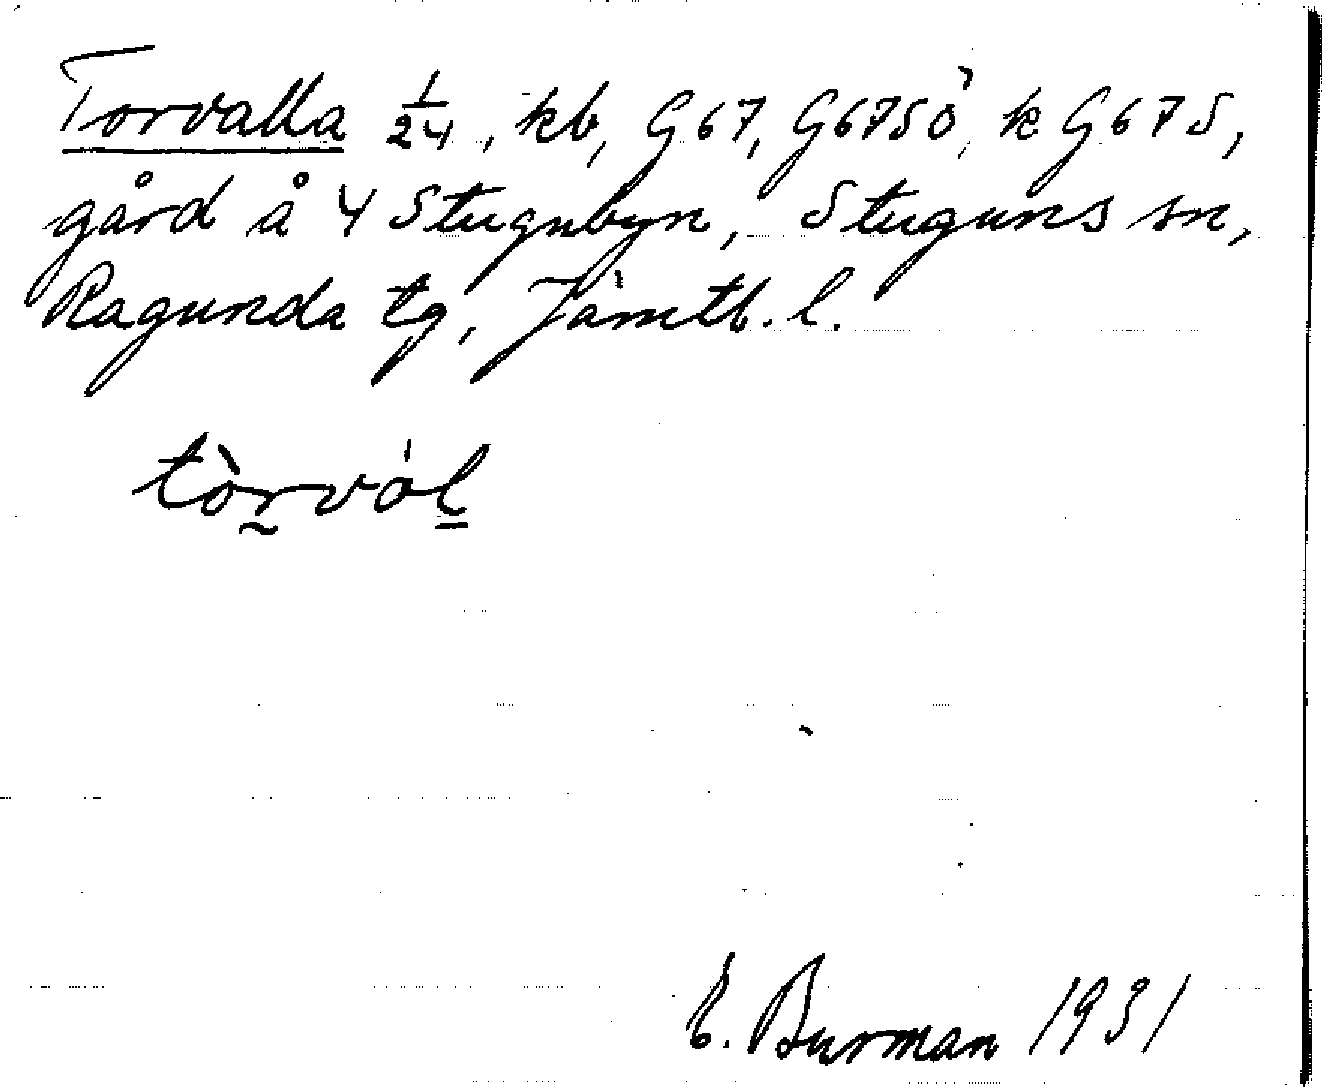 Torvalla 1/24, kb, G67, G67SÖ, k G67S,
gård å 4 Stugubyn, Stuguns sn,
Ragunda tg, Jämtl. l.
tòrvál
E. Burman 1931